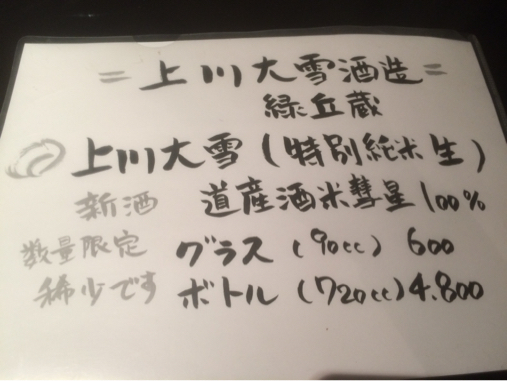 ＝上川大雪酒造＝
緑丘蔵
上川大雪(特別純米生)
新酒 道産酒米彗星100%
数量限定 グラス(90cc) 600
稀少です ボトル(720cc) 4,800